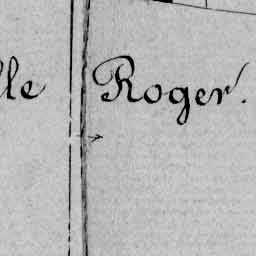 lle Roger.